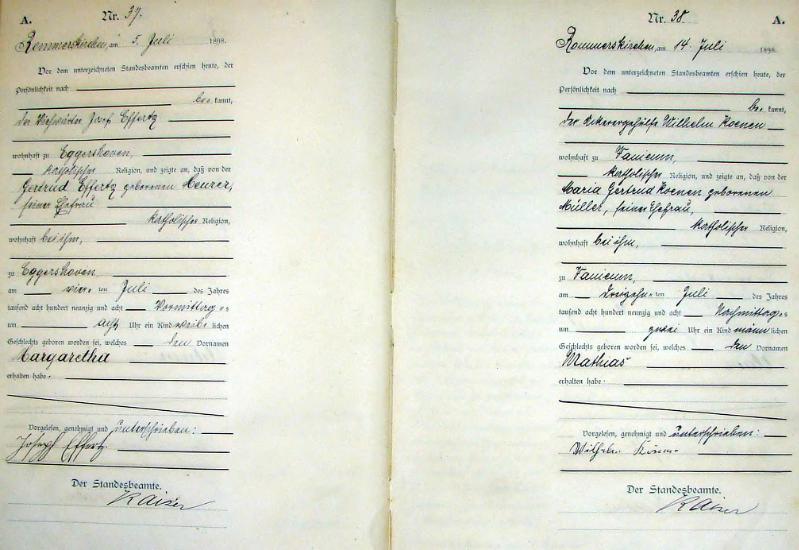 A. Nr. 37.
Rommerskirchen, am 5. Juli 1898.
Vor dem unterzeichneten Standesbeamten erschien heute, der
Persönlichkeit nach
be kannt,
der Josef Effertz
wohnhaft zu Eggershoven,
katholischer Religion, und zeigte an, daß von der
Gertrud Effertz geborenen Meurer,
seiner Ehefrau
katholischer Religion,
wohnhaft bei ihm,
zu Eggershoven
am vier ten Juli des Jahres
tausend acht hundert neunzig und acht Vormittags
um acht Uhr ein Kind weib lichen
Geschlechts geboren worden sei, welches den Vornamen
Margaretha
erhalten habe.
Vorgelesen, genehmigt und unterschrieben:
Joseph Effertz
Der Standesbeamte.
Kaiser
Nr. 38. A.
Rommerskirchen, am 14. Juli 1898.
Vor dem unterzeichneten Standesbeamten erschien heute, der
Persönlichkeit nach
be kannt,
der Ackergehülfe Wilhelm Koenen
wohnhaft zu Vanicum,
katholischer Religion, und zeigte an, daß von der
Maria Gertrud Koenen geborenen
Müller, seiner Ehefrau,
katholischer Religion,
wohnhaft bei ihm,
zu Vanicum,
am dreizehn ten Juli des Jahres
tausend acht hundert neunzig und acht Nachmittags
um zwei Uhr ein Kind männ lichen
Geschlechts geboren worden sei, welches den Vornamen
Mathias
erhalten habe.
Vorgelesen, genehmigt und unterschrieben:
Wilhelm
Der Standesbeamte.
Kaiser